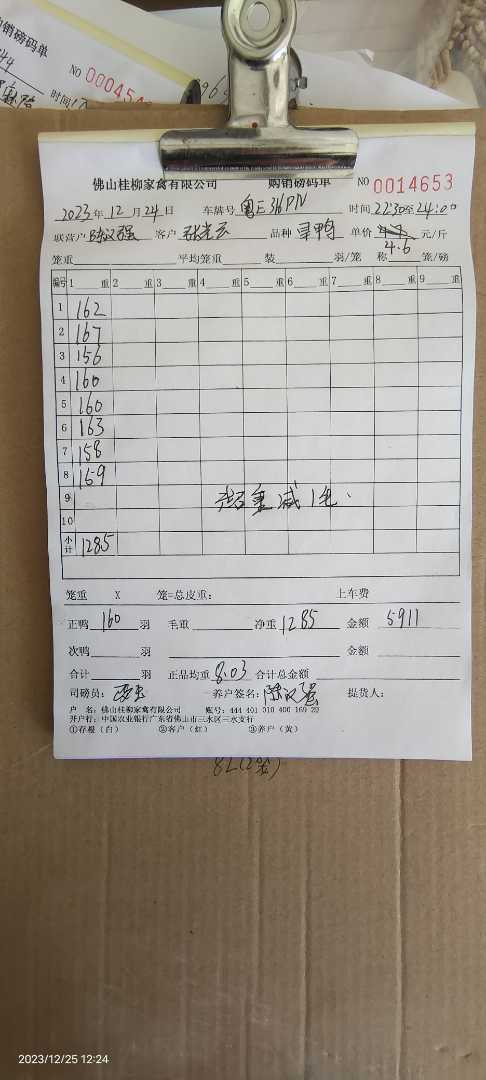 购销磅码单
NO 00045
时间
佛山桂柳家禽有限公司 购销磅码单 NO 0014653
2023年12月24日 车牌号 粤E316DN 时间 22:30至24:00
联营户 陈汉强 客户 品种 单价 4.7 元/斤
4.6
笼重 平均笼重 装 羽/笼 称 笼/磅
编号 1 重 2 重 3 重 4 重 5 重 6 重 7 重 8 重 9 重
1 162
2 167
3 156
4 160
5 160
6 163
7 158
8 159
9 超重减1毛.
10
小计 1285
笼重 X 笼=总皮重: 上车费
正鸭 160 羽 毛重 净重 1285 金额 5911
次鸭 羽 金额
合计 羽 正品均重 8.03 合计总金额
司磅员: 养户签名: 陈汉强 提货人:
户 名: 佛山桂柳家禽有限公司 账号: 444 401 010 400 169 22
开户行: 中国农业银行广东省佛山市三水区三水支行
①存根（白） ②客户（红） ③养户（黄）
2023/12/25 12:24